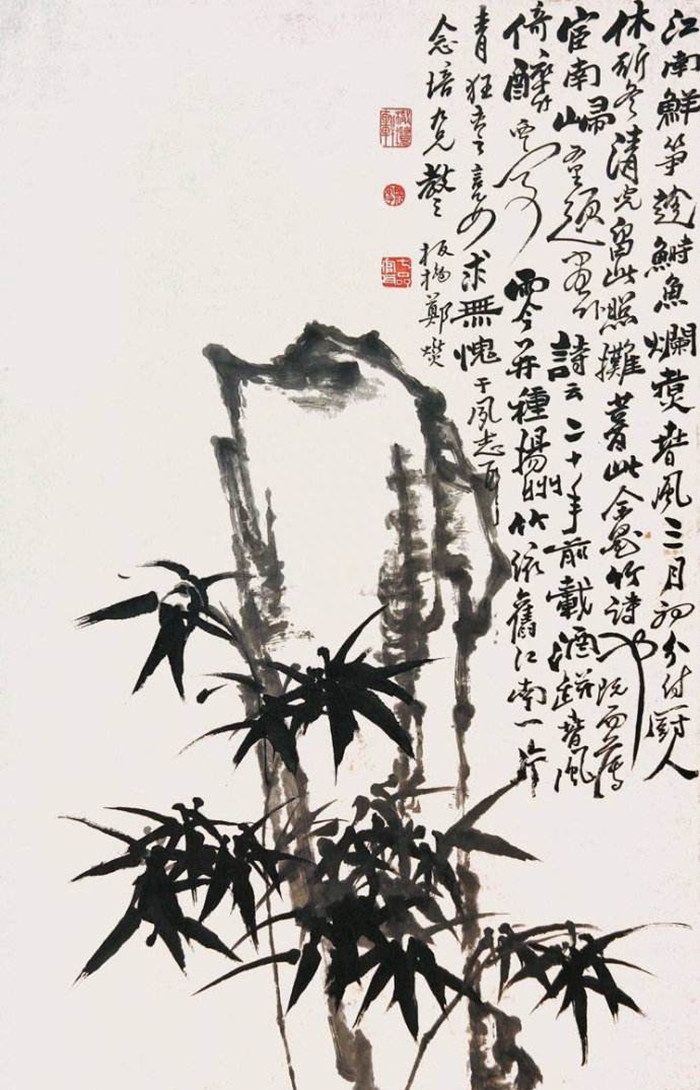 江南鮮筍趁鰣魚爛煮春風三月初分付廚人
休斫盡清光留此照攤書此余畫竹詩也既而
宦南歸重題畫外詩云二十年前載酒瓶春風
倚醉竹西亭而今再種揚州竹依舊江南一片
青狂吾言求無愧于夙志耳
念培九兄教之 板橋鄭燮
七品官耳